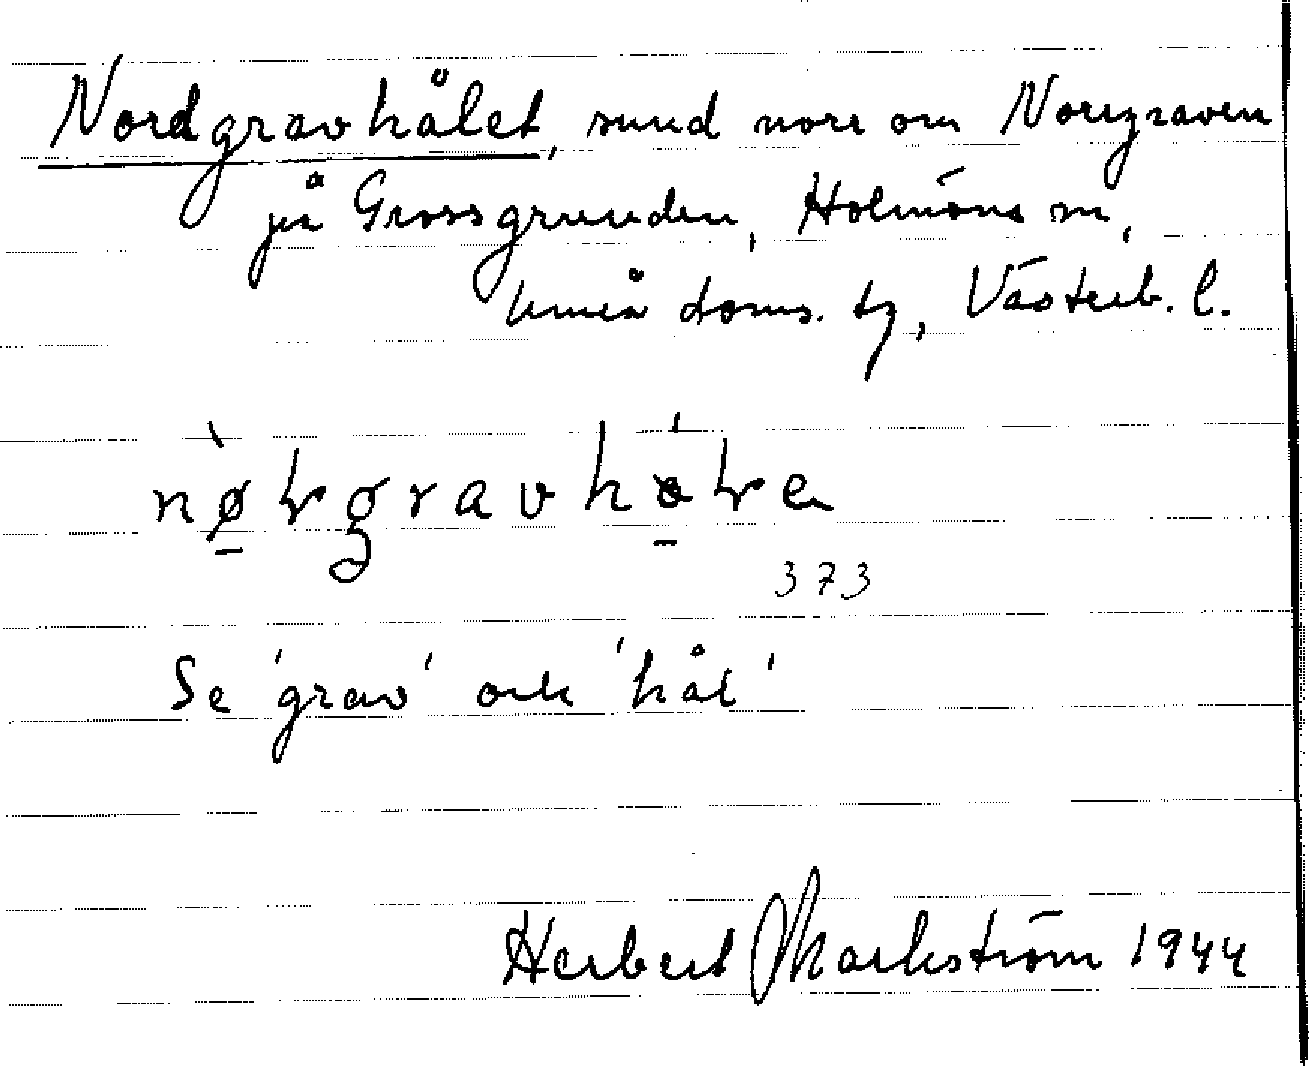 Nordgravhålet, sund norr om Norrgraven
på Grossgrunden, Holmöns sn,
Umeå doms. tg, Västerb. l.
373
Se 'grav' och 'hål'
Herbert Markström 1944